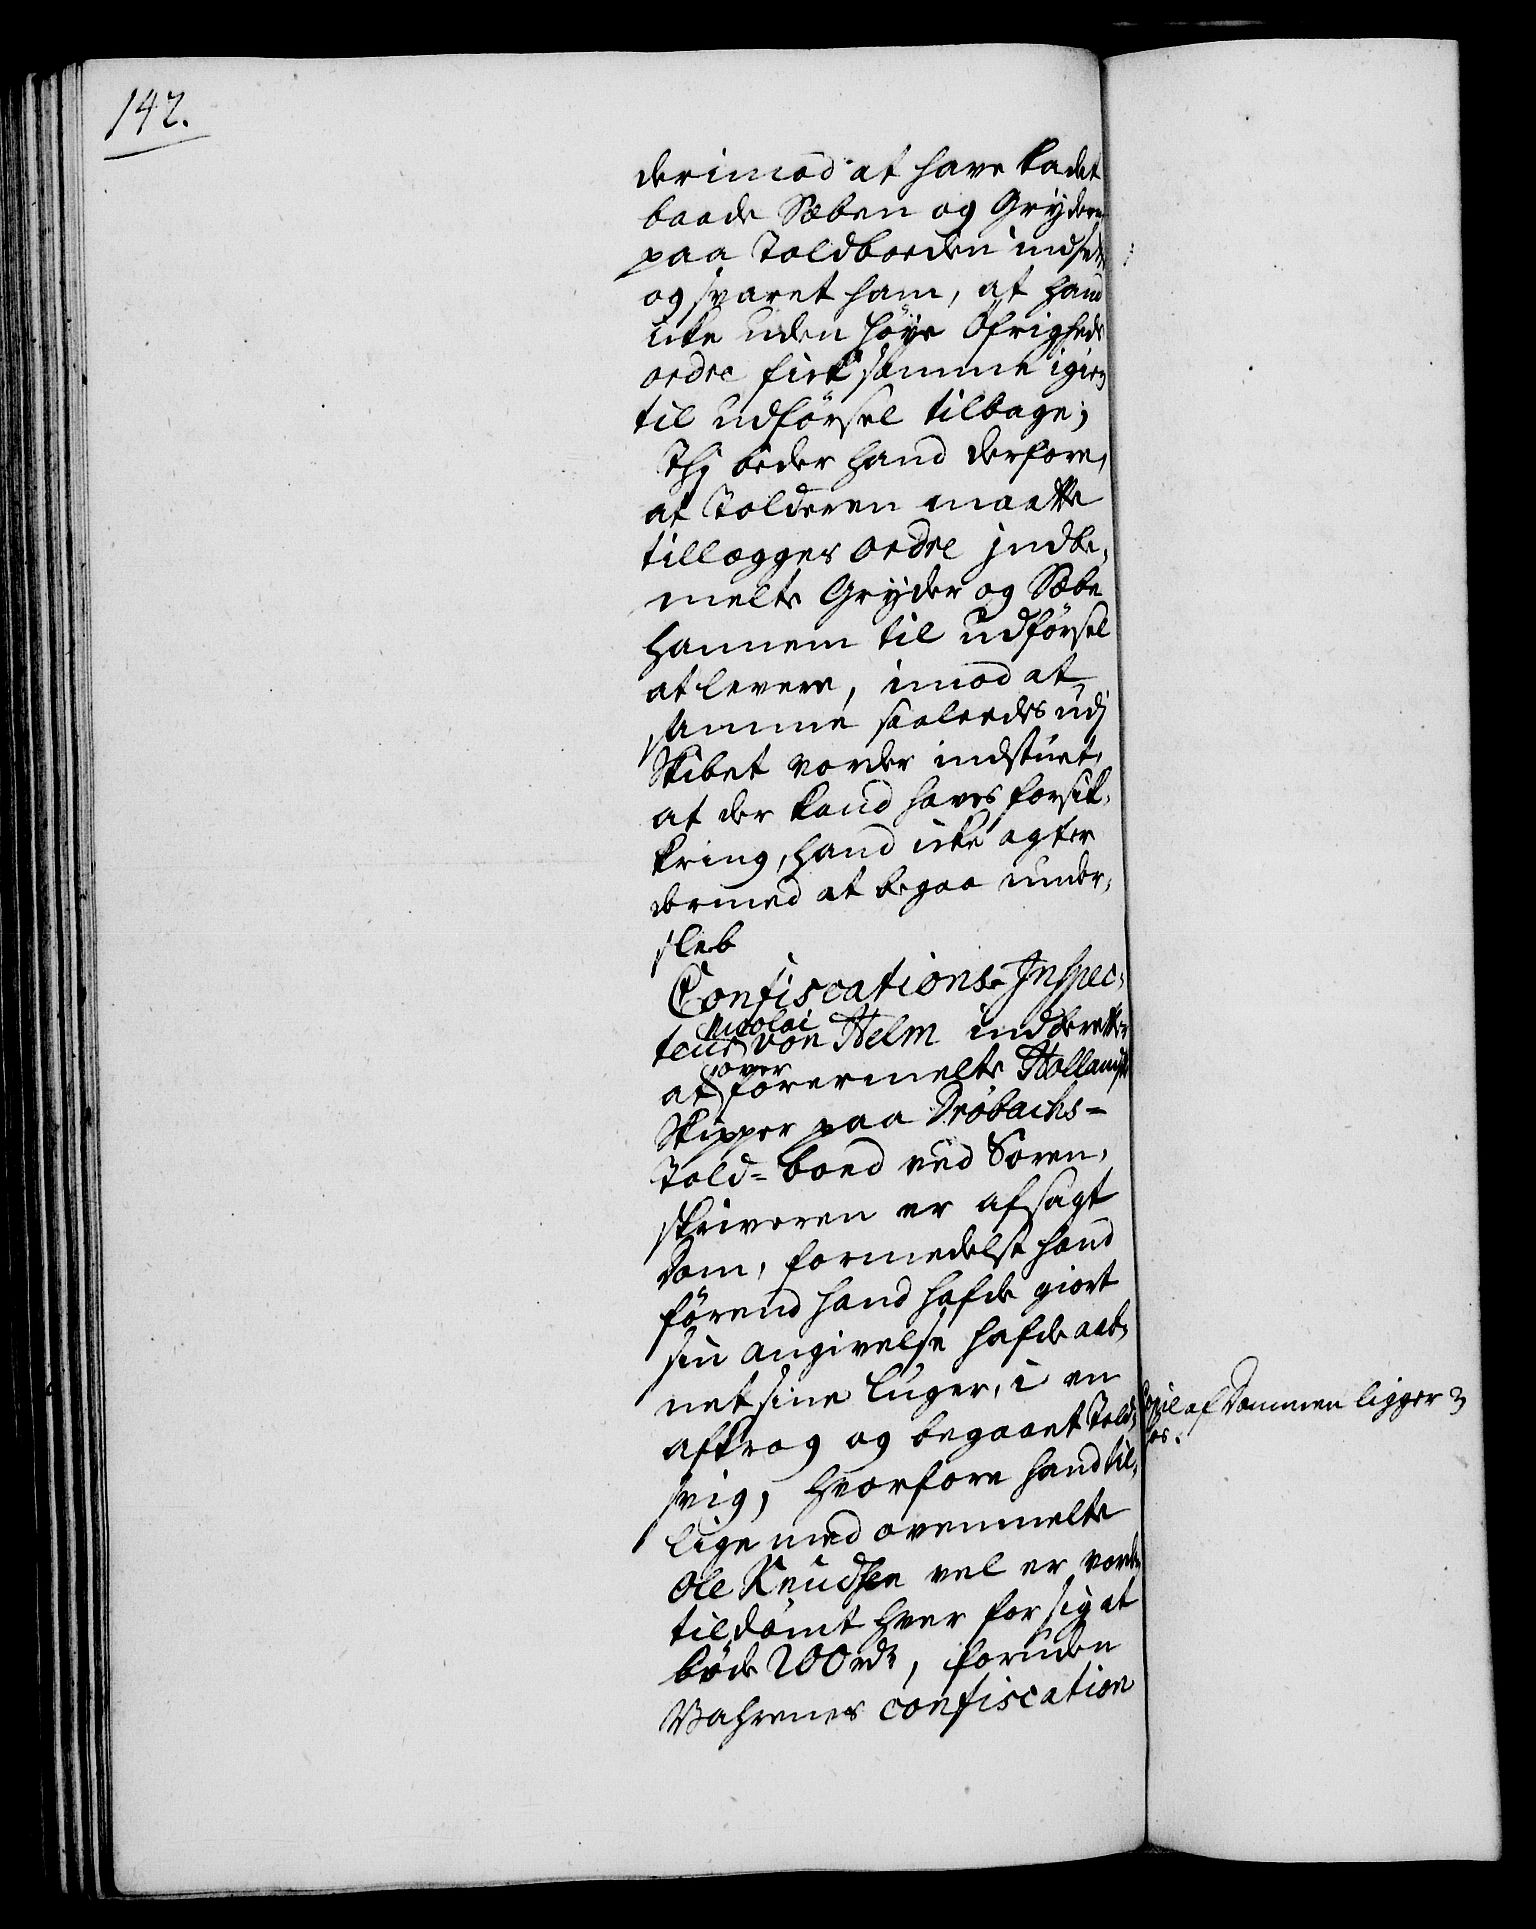 142.
derimod at have ladet
baade Sæben og Gryderne
paa Toldboeden indsette
og svaret ham, at hand
icke uden høye Øfrigheds
ordre fick samme igien
til udførsel tilbage;
Thj beder hand derfore,
at Tolderen maatte
tillægges ordre indbe-
melte Gryder og Sæbe
hannem til udførsel
at levere, imod at
samme saaledes udj
Skibet vorder indstuet,
at der kand haves forsik-
kring, hand icke agter
dermed at begaa under-
sleb
Confiscations-Inspec-
teur Nicolai von Helm indberetter
at over forermelte Hollandske
Skipper paa Drøbachs-
Told-boed ved Soren-
skriveren er afsagt
Dom, formedelst hand
førend hand hafde giort
sin angivelse hafde aab-
net sine Luger, i en
afkrog og begaaet Told-
svig, hvorfore hand til-
lige med ovenmelte
Ole Knudsen vel er vorden
tildømt hver for sig at
bøde 200 rdr, foruden
Wahrenes confiscation
Copie af Dommen ligger
hos.